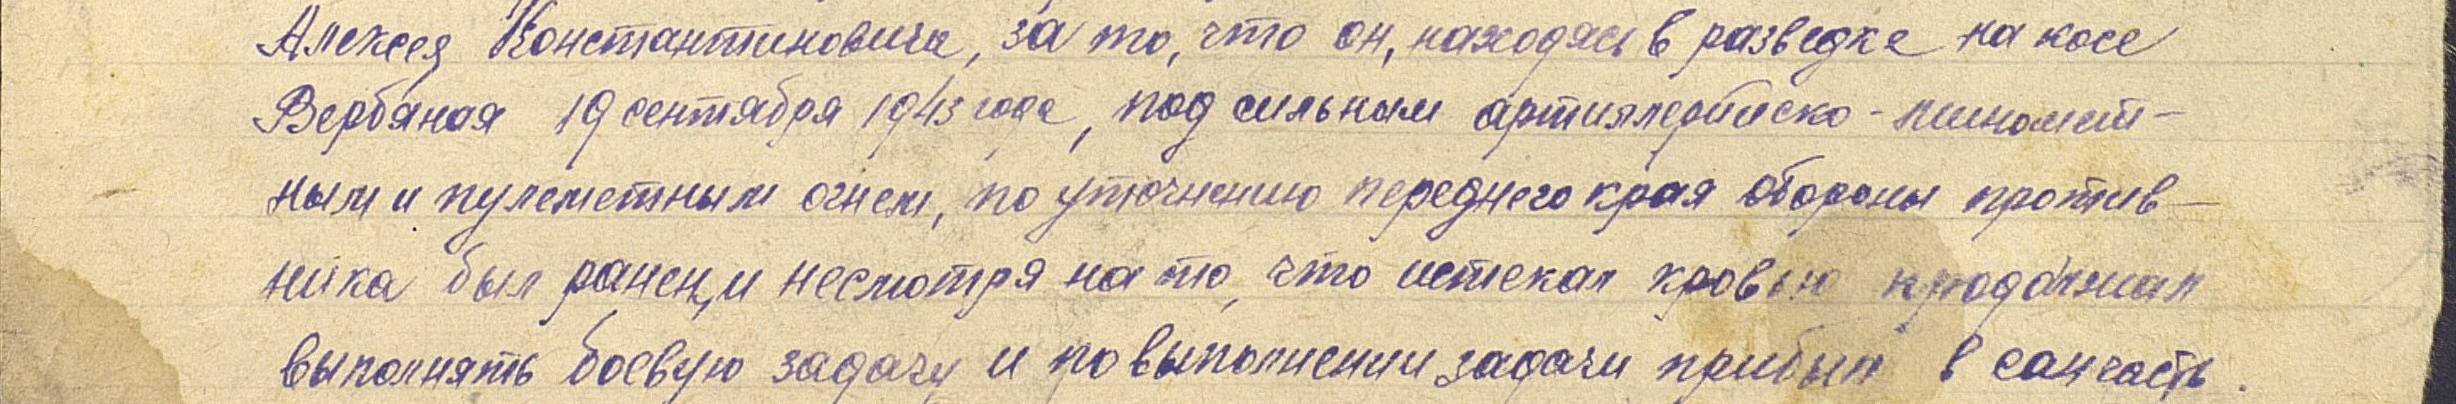 Алексея Константиновича, за то, что он, находясь в разведке на косе
Вербяная 19 сентября 1943 года, под сильным артиллерийско-миномет-
ным и пулеметным огнем, по уточнению переднего края обороны против-
ника был ранен, и несмотря на то, что истекал кровью продолжал
выполнять боевую задачу и по выполнении задачи прибыл в санчасть.